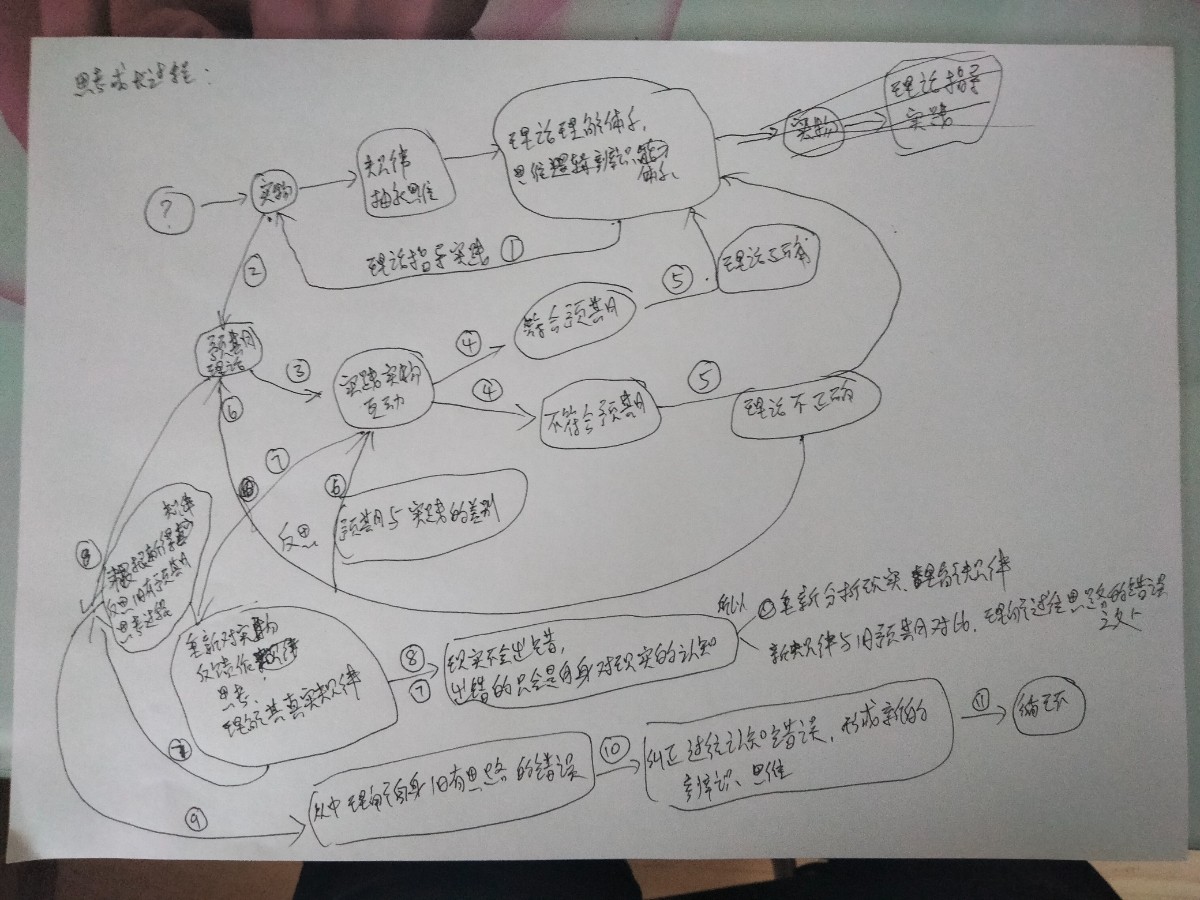 思考成长过程：
?
实物
规律
抽象思维
理论理解体系，
思维逻辑认识能力
体系
实物
理论指导
实践
理论指导实践 ①
②
预期
理论
③
实践实物
互动
④
符合预期
⑤
理论正确
④
不符合预期
⑤
理论不正确
⑥
⑦
⑥
反思
预期与实践的差别
⑧
规律
根据新得
反思旧有预期
思考过程
重新对实物
反馈作
思考，
理解其真实规律
⑧
⑦
现实不会出错，
出错的只会是自身对现实的认知
所以
重新分析现实、理解规律
新规律与旧预期对比，理解过往思路的错误
之处
⑨
从中理解自身旧有思路的错误
⑩
纠正过往认知错误，形成新的
知识、思维
⑪
循环